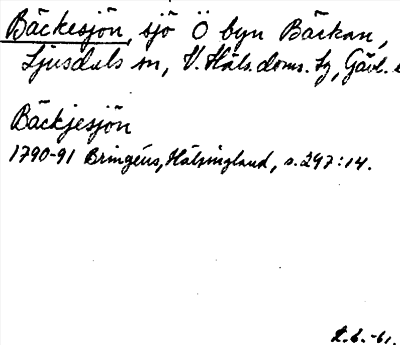 Bäckesjön, sjö Ö byn Bäckan,
Ljusdals sn, V. Häls. doms. sg, Gävl.
Bäckjesjön
1790-91 Bringéus, Hälsingland, s. 297:14.
-61.